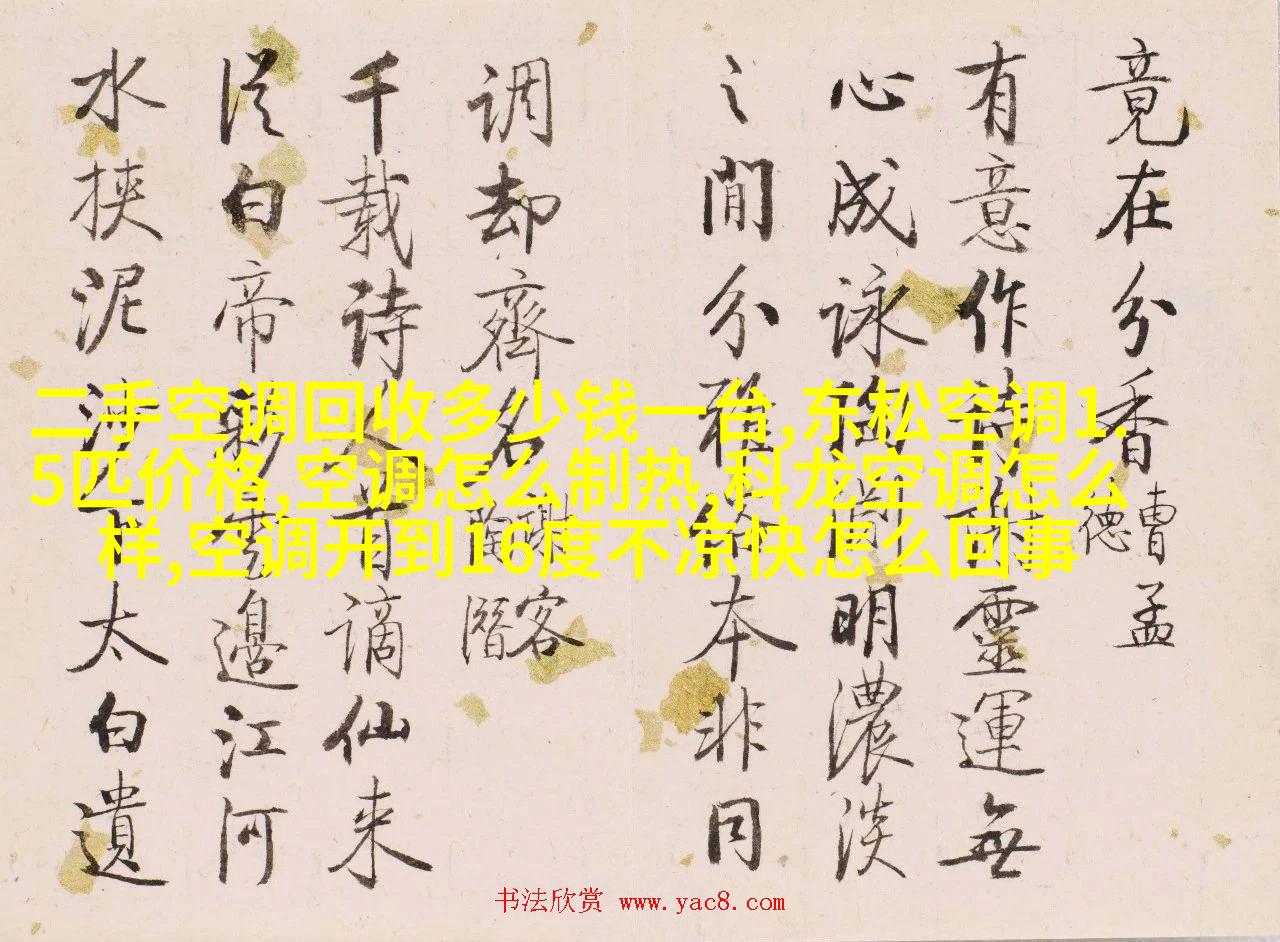 竟在分香 曹孟德
有意作靈運無
心成詠明濃淡
之間分雅本非同
调却齊名
客
潛
千载诗人有谪仙来
從白帝彩雲邊江河
水挟泥沙下太白遺
二手空调回收多少钱一台,东松空调1.
5匹价格,空调怎么制热,科龙空调怎么
样,空调开到16度不凉快怎么回事
书法欣赏 www.yac8.com